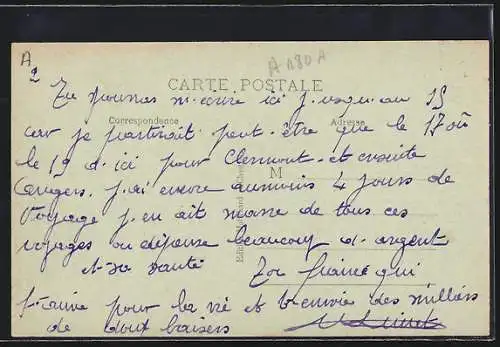 A
2
A 180 A
CARTE POSTALE
Correspondance
Adresse
Tu pourras m'ecrire ici jusqu'au 15
car je partirait peut-être que le 17 où
le 19 d'ici pour Clermont et ensuite
Angers. j'ai encore au moins 4 jours de
M
voyage j'en ait marre de tous ces
voyages on dépense beaucoup d'argent
et sa santé Ton fiancé qui
t'aime pour la vie et t'envoie des milliers
de doux baisers